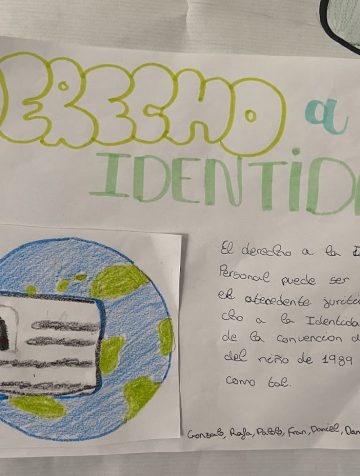 ERECHO a
IDENTID
El derecho a la I
Personal puede ser
el atecedente jurota
cho a la Identida
de la convencion d
del niño de 1989
como tal.
Gonzalo, Rafa, Pablo, Fran, Daniel, Dan